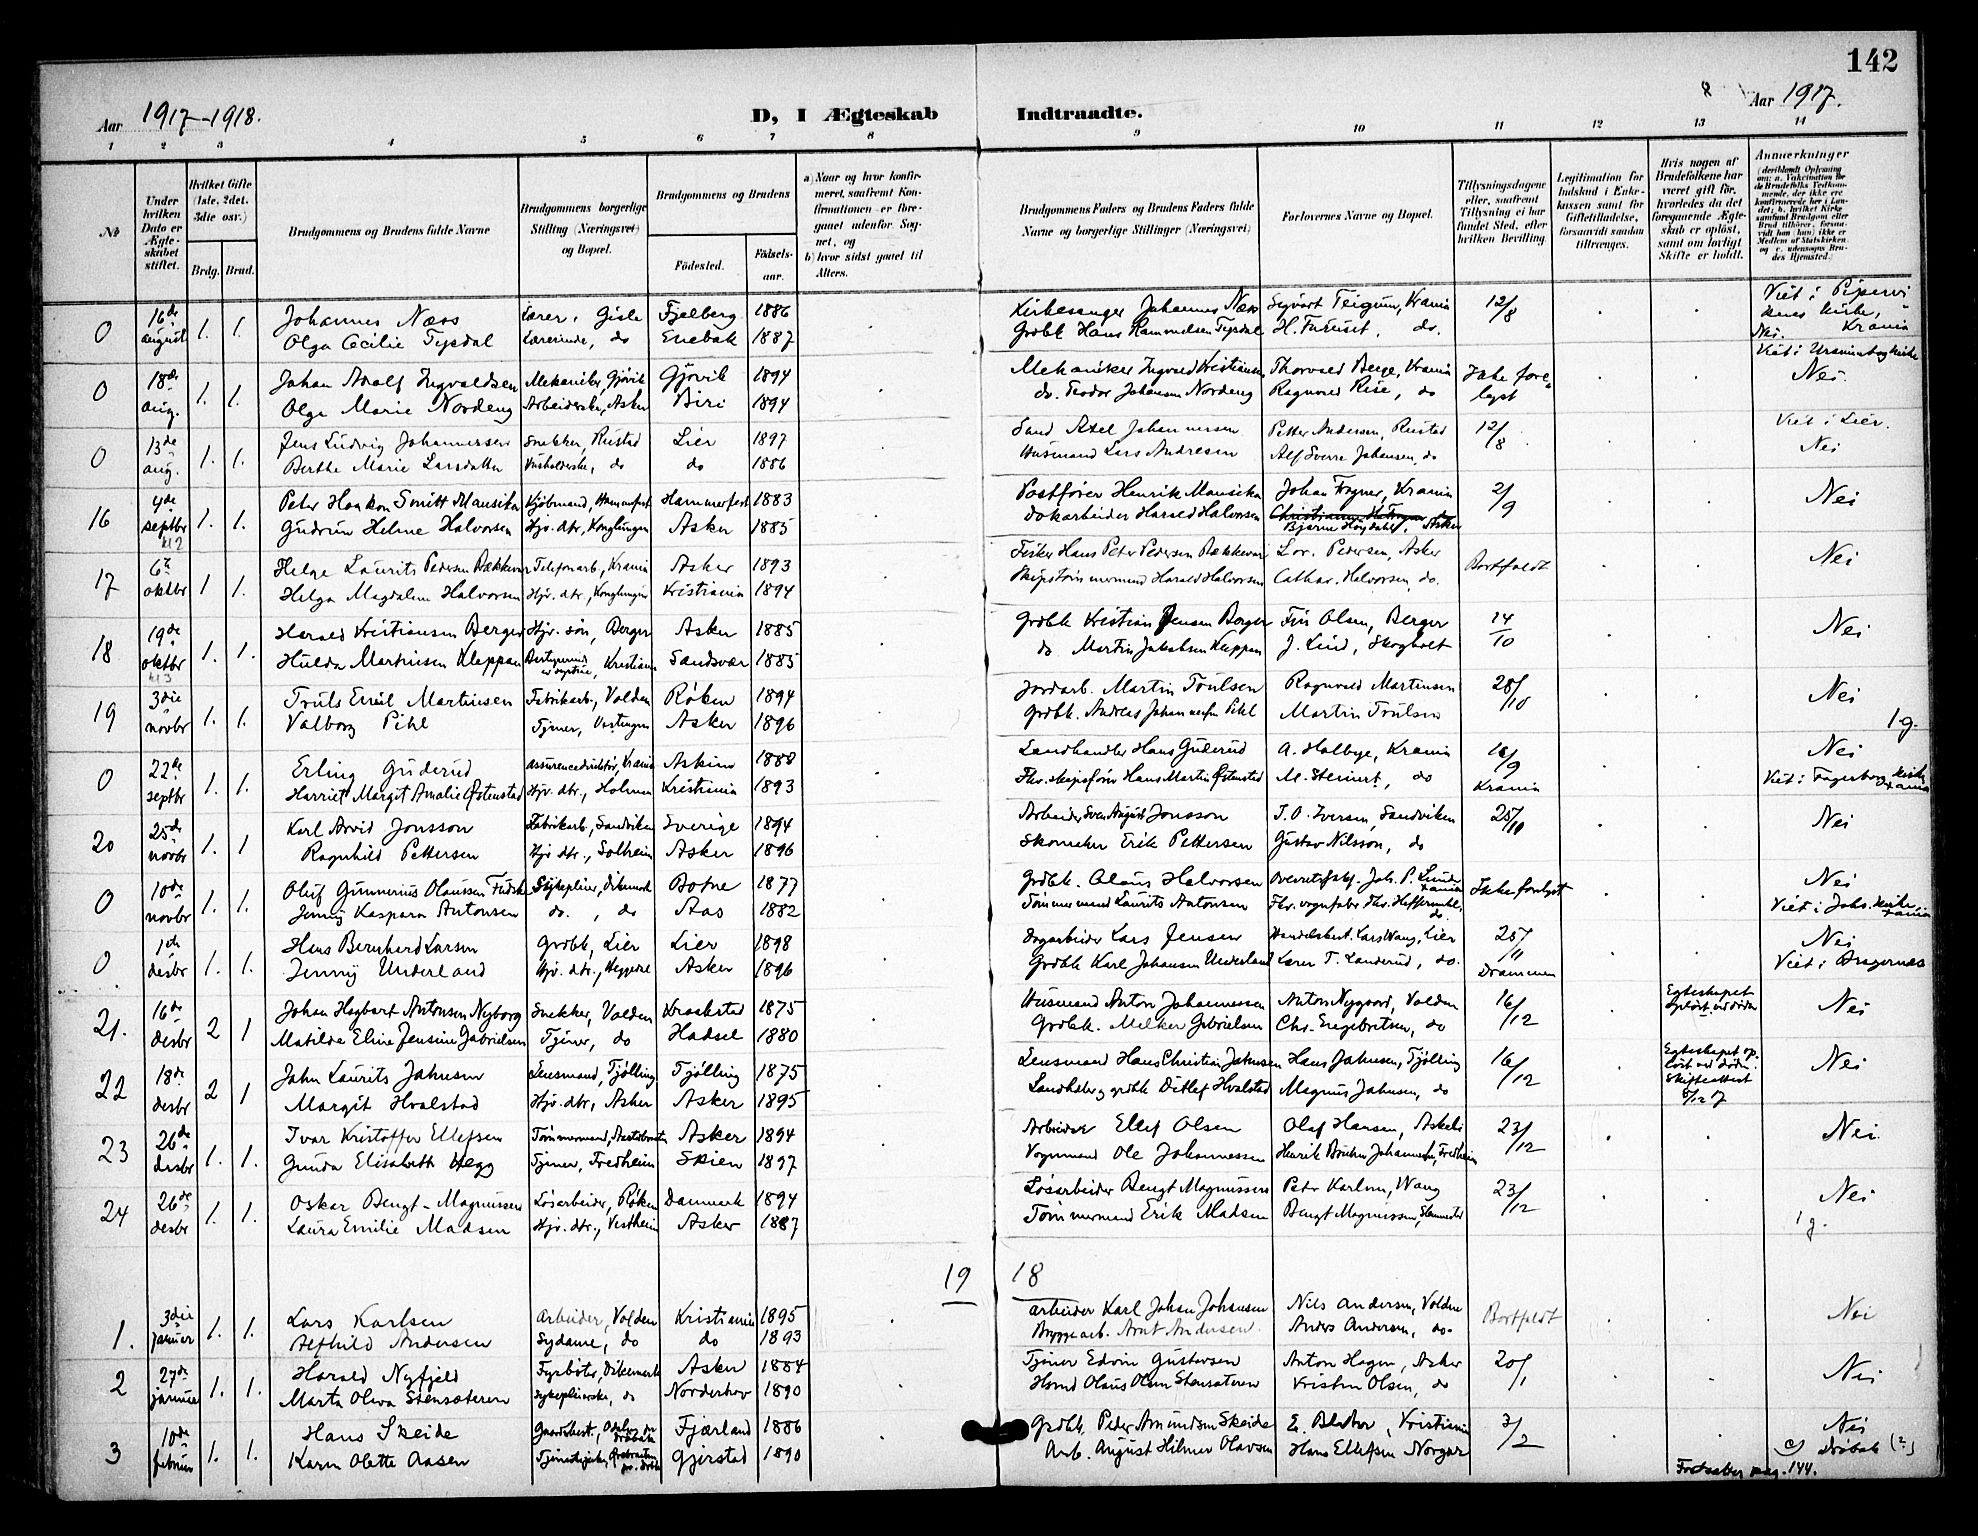 142
Aar 1917-1918.
D, I Ægteskab
Indtraadte.
Aar 1917.
1 2 3 4 5 6 7 8 9 10 11 12 13 14
No
Under hvilken Dato er Ægteskabet stiftet.
Hvilket Gifte (1ste, 2det, 3die osv.)
Brdg. Brud.
Brudgommens og Brudens fulde Navne
Brudgommens borgerlige Stilling (Næringsvei) og Bopæl.
Brudgommens og Brudens
Fødested.
Fødselsaar.
a) Naar og hvor konfirmeret, saafremt Konfirmationen er foregaaet udenfor Sognet, og
b) hvor sidst gaaet til Alters.
Brudgommens Faders og Brudens Faders fulde Navne og borgerlige Stillinger (Næringsvei)
Forlovernes Navne og Bopæl.
Tillysningsdagene eller, saafremt Tillysning ei har fundet Sted, efter hvilken Bevilling.
Legitimation for Indskud i Enkekassen samt for Giftetilladelse, forsaavidt saadan tiltrænges.
Hvis nogen af Brudefolkene har været gift før, hvorledes da det foregaaende Ægteskab er opløst, samt om lovligt Skifte er holdt.
Anmerkninger
0 16de august 1. 1. Johannes Næss Lærer, Gisle Fjelberg 1886 Kirkesanger Johannes Næss Sigvart Teigum, Krania 12/8 Viet i Pipervikens kirke, Krania
Olga Cecilie Tysdal Lærerinde, do Enebak 1887 Grdbr. Hans Hamundsen Tysdal H. Furuset, do. Nei.
0 18de aug. 1. 1. Johan Adolf Ingvaldsen Mekaniker, Gjøvik Gjøvik 1894 Mekaniker Ingvald Kristiansen Thorvald Berge, Krania Ikke forelagt Viet i Uranienborg kirke
Olga Marie Nordeng Arbeiderske, Asker Biri 1894 do. Teodor Johansen Nordeng Ragnvald Rise, do Nei.
0 13de aug. 1. 1. Jens Ludvig Johannessen Snekker, Rustad Lier 1897 Sand Axel Johannessen Petter Andersen, Rustad 12/8 Viet i Lier.
Berthe Marie Larsdatter Husholderske, do do 1886 Husmand Lars Andresen Alf Sverre Johansen, do Nei
16 4de septbr 1. 1. Peter Haakon Smitt Mausika Kjøbmand, Hammerfest Hammerfest 1883 Postfører Henrik Mausika Johan Fogner, Krania 2/9 Nei
kl 2 Gudrun Helene Halvorsen Hjv. dtr, Konglungen Asker 1885 Dokarbeider Harald Halvorsen Bjarne Høydahl, Asker
17 6te oktbr 1 1. Helge Laurits Pedersen Bækkevar Telefonarb, Krania Asker 1893 Fisker Hans Peter Pedersen Bækkevar Lor. Pedersen, Asker Bortfaldt Nei
Helga Magdalene Halvorsen Hjv. dtr, Konglungen Kristiania 1894 Skipstømmermand Harald Halvorsen Cathar. Halvorsen, do.
18 19de oktbr 1. 1. Harald Kristiansen Berger Hjv. søn, Berger Asker 1885 Grdbr. Kristian Jensen Berger Finn Olsen, Berger 14/10 Nei
kl 3 Hulda Martinsen Kleppan Kristiania Sandsvær 1885 do Martin Jakobsen Kleppan J. Lind, Skogholt
19 3die novbr 1. 1. Truls Emil Martinsen Fabrikarb., Valden Røken 1894 Jordarb. Martin Trulsen Ragnvald Martinsen 28/10 Nei
Valborg Pihl Tjener, Vestengen Asker 1896 Grdbr. Andreas Johannessen Pihl Martin Trulsen 1 g.
0 22de septbr 1. 1. Erling Guderud Assurancedirektør, Krania Askim 1888 Landhandler Hans Guderud A. Halbye, Krania 16/9 Nei
Harriet Margit Amalie Østenstad Hjv. dtr., Holmen Kristiania 1893 Fhv. skipsfører Hans Martin Østenstad M. Steinert, do Krania Viet i Fagerborg kirke Krania
20 25de novbr 1. 1 Karl Arvid Jonsson Fabrikarb., Sandviken Sverige 1894 Arbeider Sven August Jonsson I. O. Iversen, Sandviken 25/10 Nei
Ragnhild Pettersen Hjv dtr., Solheim Asker 1896 Skomaker Erik Pettersen Gustav Nilsson, do
0 10de novbr 1. 1. Oluf Gunnerius Olaussen Sykepleier, Dikemark Botne 1877 Grdbr. Olaus Halvorsen Joh. P. Lunde Krania Ikke forelagt Nei
Jenny Kaspara Antonsen do., do Aas 1882 Tømmermand Laurits Antonsen Viet i Johs. kirke, Krania
0 1ste desbr 1. 1. Hans Bernhard Larsen Grdbr, Lier Lier 1898 Dagarbeider Lars Jensen Handelsbest. Lars Wang, Lier 25/11 Nei
Jenny Underland Hjv. dtr., Heggedal Asker 1896 Grdbr Karl Johansen Underland Lærer T. Landerud, do. Drammen Viet i Bragernes
21. 16de desbr 2 1 Johan Hagbart Antonsen Nyborg Snekker, Valden Kraakstad 1875 Husmand Anton Johannessen Anton Nygaard, Valden 16/12 Egteskapet opløst ved døden Nei
Matilde Eline Jensine Gabrielsen Tjener, do Hadsel 1880 Grdbr. Melker Gabrielsen Chr. Engebretsen, do
22 18de desbr 2 1 John Laurits Jahnsen Lensmand, Tjølling Tjølling 1875 Lensmand Hans Christian Jahnsen Hans Jahnsen, Tjølling 16/12 Egteskapet opløst ved døden. Skifteattest 5/12 17 Nei
Margit Hvalstad Hjv. dtr, Asker Asker 1895 Landhdler og grdbr Ditlef Hvalstad Magnus Jahnsen, do
23 26de desbr 1. 1. Ivar Kristoffer Ellefsen Tømmermand, Asker 1894 Arbeider Ellef Olsen Olaf Hansen, Askeli 23/12 Nei.
Gunda Elisabeth Hegg Tjener, Fredheim Skien 1897 Vognmand Ole Johannessen Henrik Johannessen, Fredheim
24 26de desbr 1. 1. Oskar Bengt-Magnussen Løsarbeider, Røken Danmark 1894 Løsarbeider Bengt Magnussen Peter Karlsen, Wang 23/12 Nei
Laura Emilie Madsen Hjv. dtr., Vestheim Asker 1887 Tømmermand Erik Madsen Bengt Magnussen, 1 g.
19 18
1. 3die januar 1. 1. Lars Karlsen Arbeider, Valden Kristiania 1895 Arbeider Karl Johan Johansen Nils Andersen, Valden Bortfaldt Nei
Alfhild Andersen Sydame, do do 1893 Bryggearb. Arnt Andersen Anders Andersen, do.
2 27de januar 1. 1. Harald Nyfjeld Fyrbøter, Dikemark Asker 1884 Tjener Edvin Gustavsen Anton Hagen, Asker 20/1 Nei
Marta Oliva Stensæteren Sykepleierske, do Norderhov 1890 Hsmd Olaus Olsen Stensæteren Kristen Olsen, do
3 10de februar 1. 1. Hans Skeide Gaardsbest., Fjærland 1886 Grdbr. Peder Amundsen Skeide Kristiania 3/2 Nei
Karen Olette Aasen Gjerstad 1890 Arb. August Hilmer Olavsen Hans Ellefsen Norgar c) Drøbak (?)
Fortsætter pag. 144.